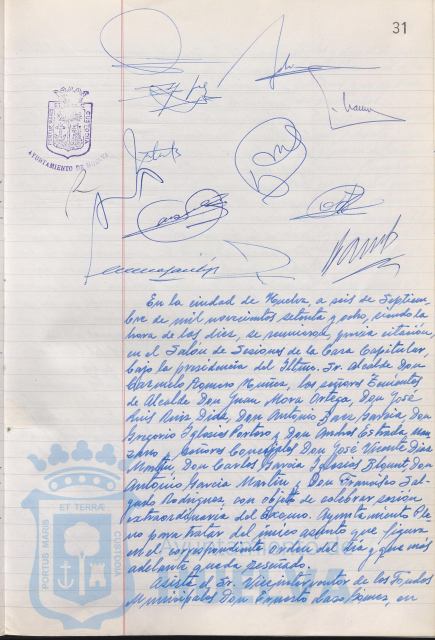 31
AYUNTAMIENTO DE HUELVA
En la ciudad de Huelva, a seis de Septiem-
bre de mil novecientos setenta y ocho, siendo la
hora de las diez, se reunieron, previa citación,
en el Salón de Sesiones de la Casa Capitular,
bajo la presidencia del Iltmo. Sr. Alcalde Don
Carmelo Romero Núñez, los señores Tenientes
de Alcalde Don Juan Mora Ortega, Don José
Luis Ruiz Díaz, Don Antonio
Gregorio Iglesias y Don Andrés Estrada Man-
zano, Señores Concejales Don José Vicente Díaz
Don Carlos García Iglesias
Antonio García Martín y Don Francisco Sal-
gado Rodríguez, con objeto de celebrar sesión
extraordinaria del Excmo. Ayuntamiento Ple-
no para tratar del único asunto que figura
en el correspondiente orden del día y que más
adelante queda reseñado.
Asiste el Sr. Viceinterventor de los Fondos
Municipales Don Ernesto Lazo Gómez, en
PORTUS MARIS
ET TERRÆ
CUSTODIA